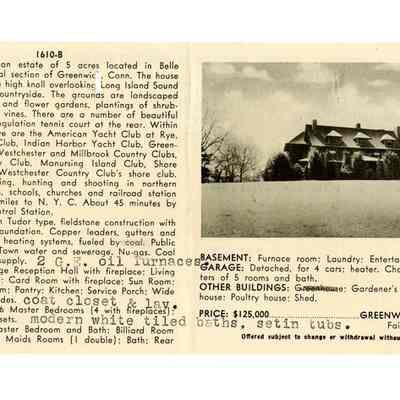 1610-B
an estate of 5 acres located in Belle
al section of Greenwich, Conn. The house
high knoll overlooking Long Island Sound
ountryside. The grounds are landscaped
and flower gardens, plantings of shrub-
vines. There are a number of beautiful
egulation tennis court at the rear. Within
re are the American Yacht Club at Rye,
Club, Indian Harbor Yacht Club, Green-
Westchester and Millbrook Country Clubs,
y Club, Manursing Island Club, Shore
Westchester Country Club's shore club.
ing, hunting and shooting in northern
s, schools, churches and railroad station
miles to N. Y. C. About 45 minutes by
ntral Station.
n Tudor type, fieldstone construction with
oundation. Copper leaders, gutters and
heating systems, fueled by coal. Public
Town water and sewerage. Nu-gas. Coal
supply. 2 G.E. oil furnaces.
ge Reception Hall with fireplace: Living
: Card Room with fireplace: Sun Room:
m: Pantry: Kitchen: Service Porch: Wide
des. coat closet & lav.
6 Master Bedrooms (4 with fireplaces):
sets. modern white tiled baths, setin tubs.
aster Bedroom and Bath: Billiard Room
Maids Rooms (1 double): Bath: Rear
BASEMENT: Furnace room: Laundry: Enterta
GARAGE: Detached, for 4 cars: heater. Cha
ters of 5 rooms and bath.
OTHER BUILDINGS: Greenhouse: Gardener's
house: Poultry house: Shed.
PRICE: $125,000 GREENW
Fai
Offered subject to change or withdrawal withou